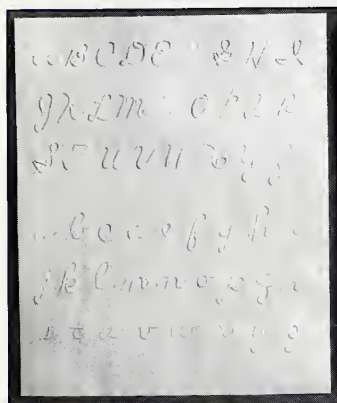 B C D E G H I
J K L M O P Q R
S T U V W X Y Z
b c d e f g h i
j k l m n o p q r
s t u v w x y z